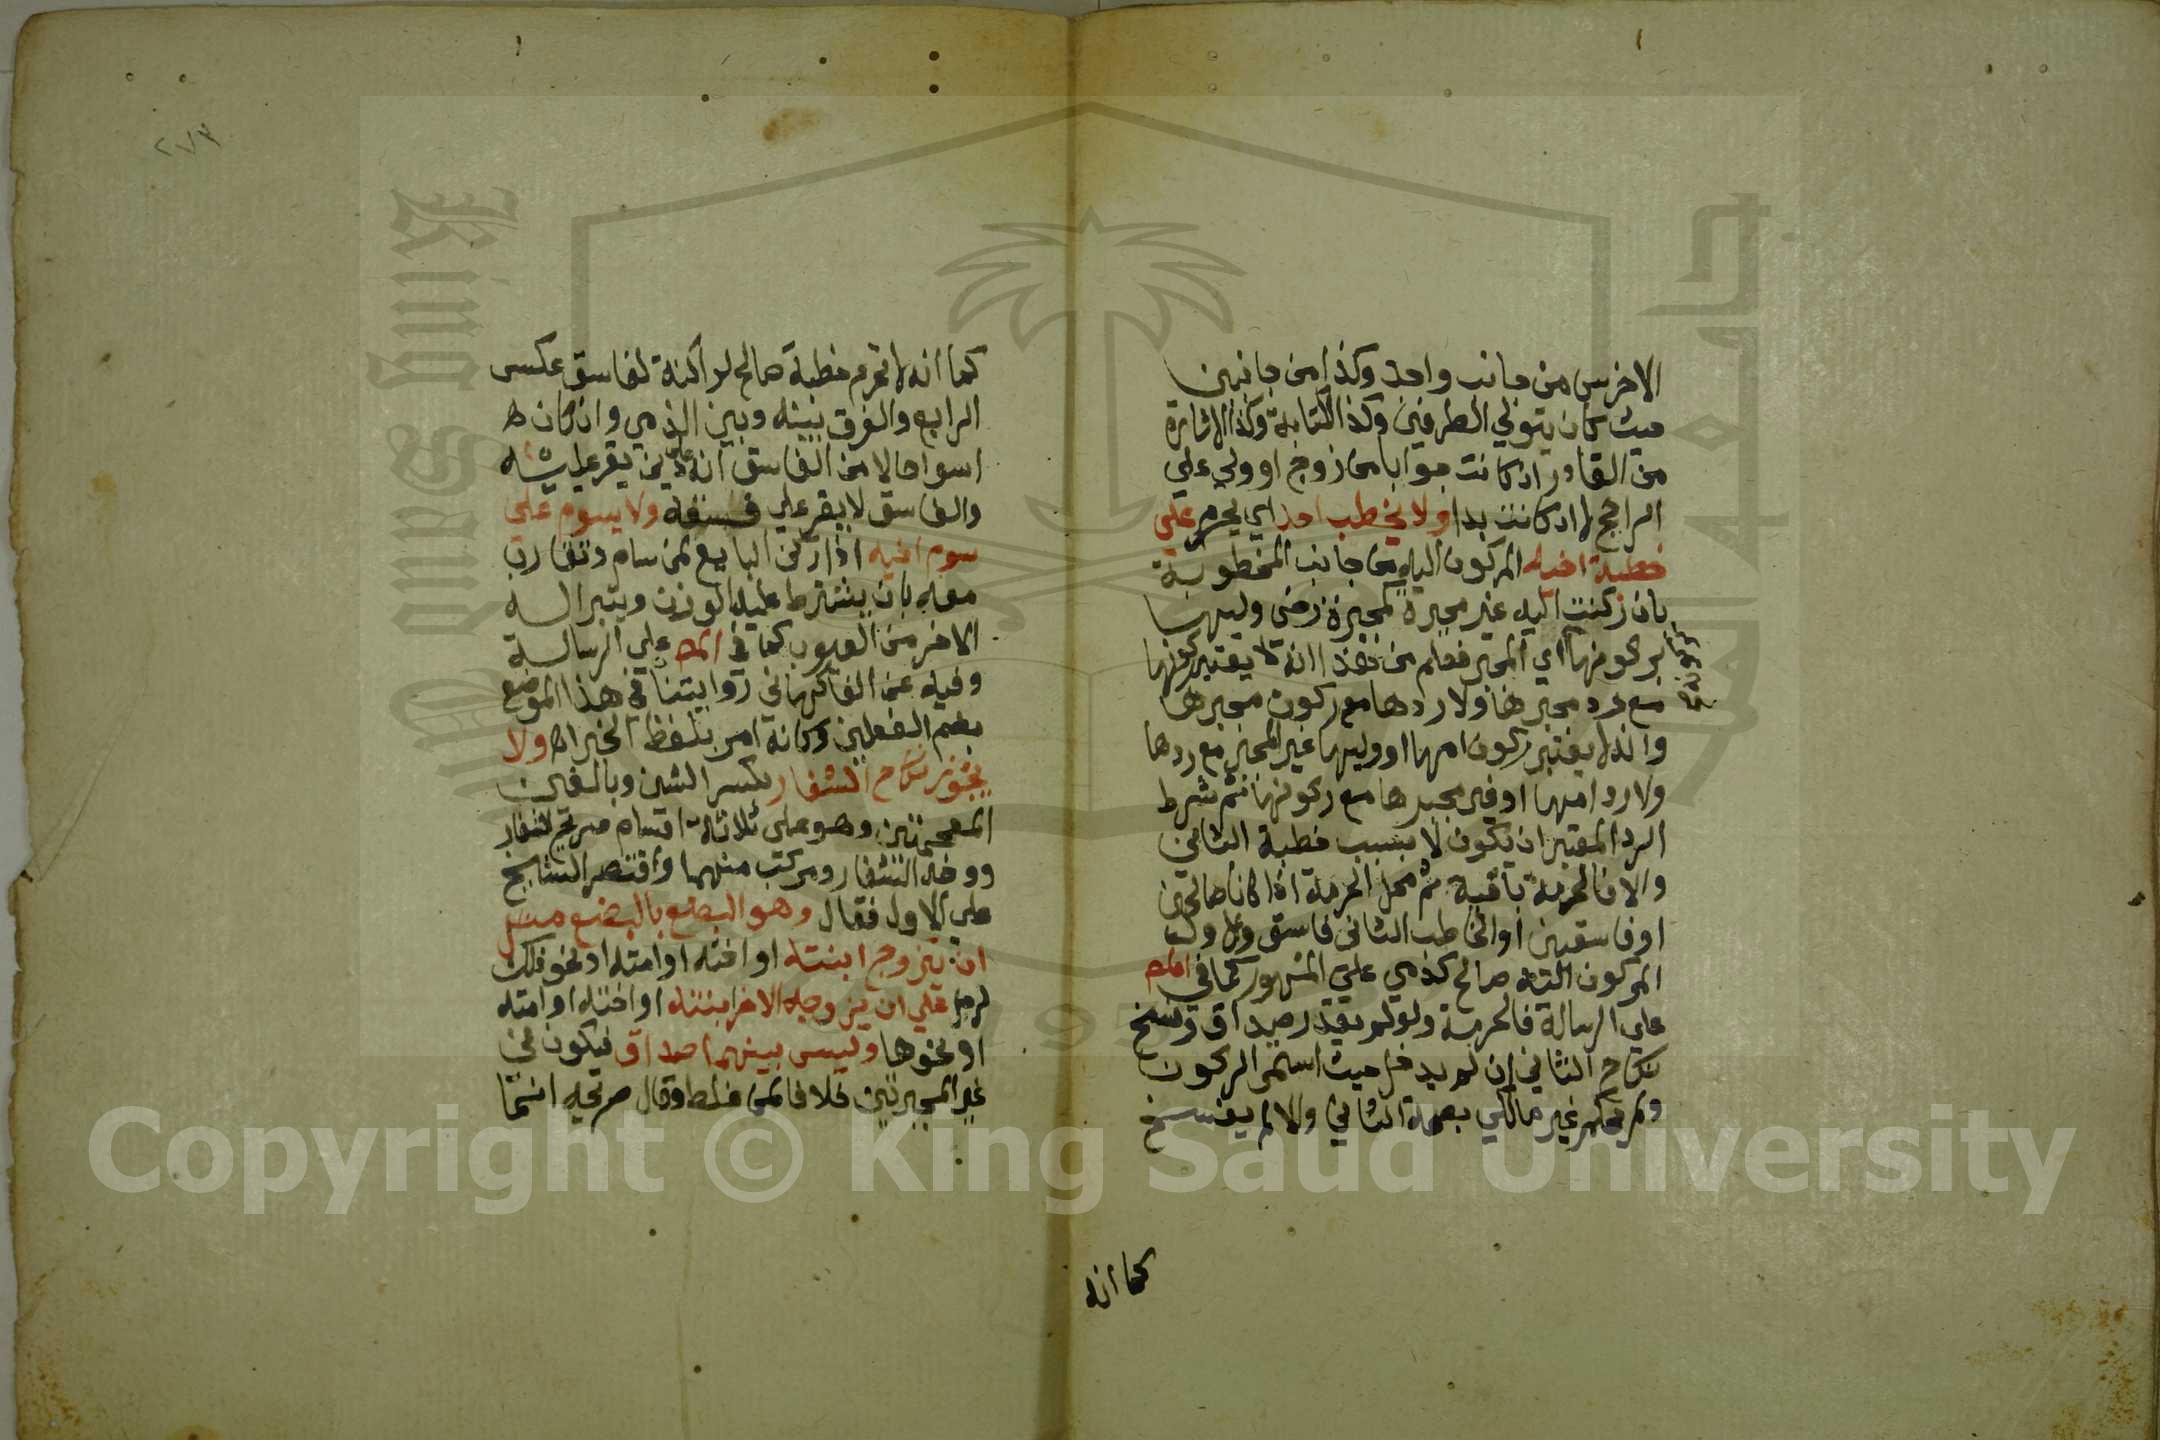 الاخرس من جانب واحد وكذا من جانبين
حيث كان يتولي الطرفين وكذا الكتابة وكذا الاشارة
من القادر ان كانت جوابا من زوج او ولي علي
الراجح لا ان كانت بدا ولا يخطب احد اي يحرم علي
خطبة اخيه المركون اليه من جانب المخطوبة
بان ركنت اليه غير مجبرة كمجبرة رضي وليها
بركونها اي المجبر فعلم من هذا انه لا يعتبر ركونها
مع رد مجبرها ولا ردها مع ركون مجبرها
وانه لا يعتبر ركون امها او وليها غير المجبر مع ردها
ولا رد امها او غير مجبرها مع ركونها ثم شرط
الرد المعتبر ان يكون لا بسبب خطبة الثاني
والا فالحرمة باقية ثم محل الحرمة اذا كانا صالحين
او فاسقين او الخاطب الثاني فاسق وال
المركون اليه صالح كذمي علي المشهور كما في
علي الرسالة فالحرمة ولو لم يقدر صداق وفسخ
نكاح الثاني ان لم يدخل حيث استمر الركون
ولم يحكم غير مالكي بصحة الثاني والا لم يفسخ
كما انه
٢٧٣
كما انه لا تحرم خطبة صالح لراكنة لفاسق عكس
الرابع والفرق بينه وبين الذمي وان كان
اسوا حالا من الفاسق انه علي دين يقر عليه
والفاسق لا يقر علي فسقه ولا يسوم علي
سوم اخيه اذا ركن البايع لمن سام وتقارب
معه بان يشترط عليه الوزن ويتبرا له
الاخر من العيوب كما في علي الرسالة
وفيه عن الفاكهاني روايتنا في هذا الموضع
بضم الفعلين وكانه امر بلفظ الخبر ولا
يجوز نكاح الشغار بكسر الشين وبالغين
المعجمتين وهو علي ثلاثة اقسام صريح الشغار
ووجه الشغار ومركب منهما واقتصر الشيخ
علي الاول فقال وهو البضع بالبضع مثل
ان يزوج ابنته او اخته او امته او نحو ذلك
لرجل علي ان يزوجه الاخر ابنته او اخته او امته
او نحوها وليس بينهما صداق فيكون في
غير المجبرتين خلافا لمن غلط وقال صريحه انما